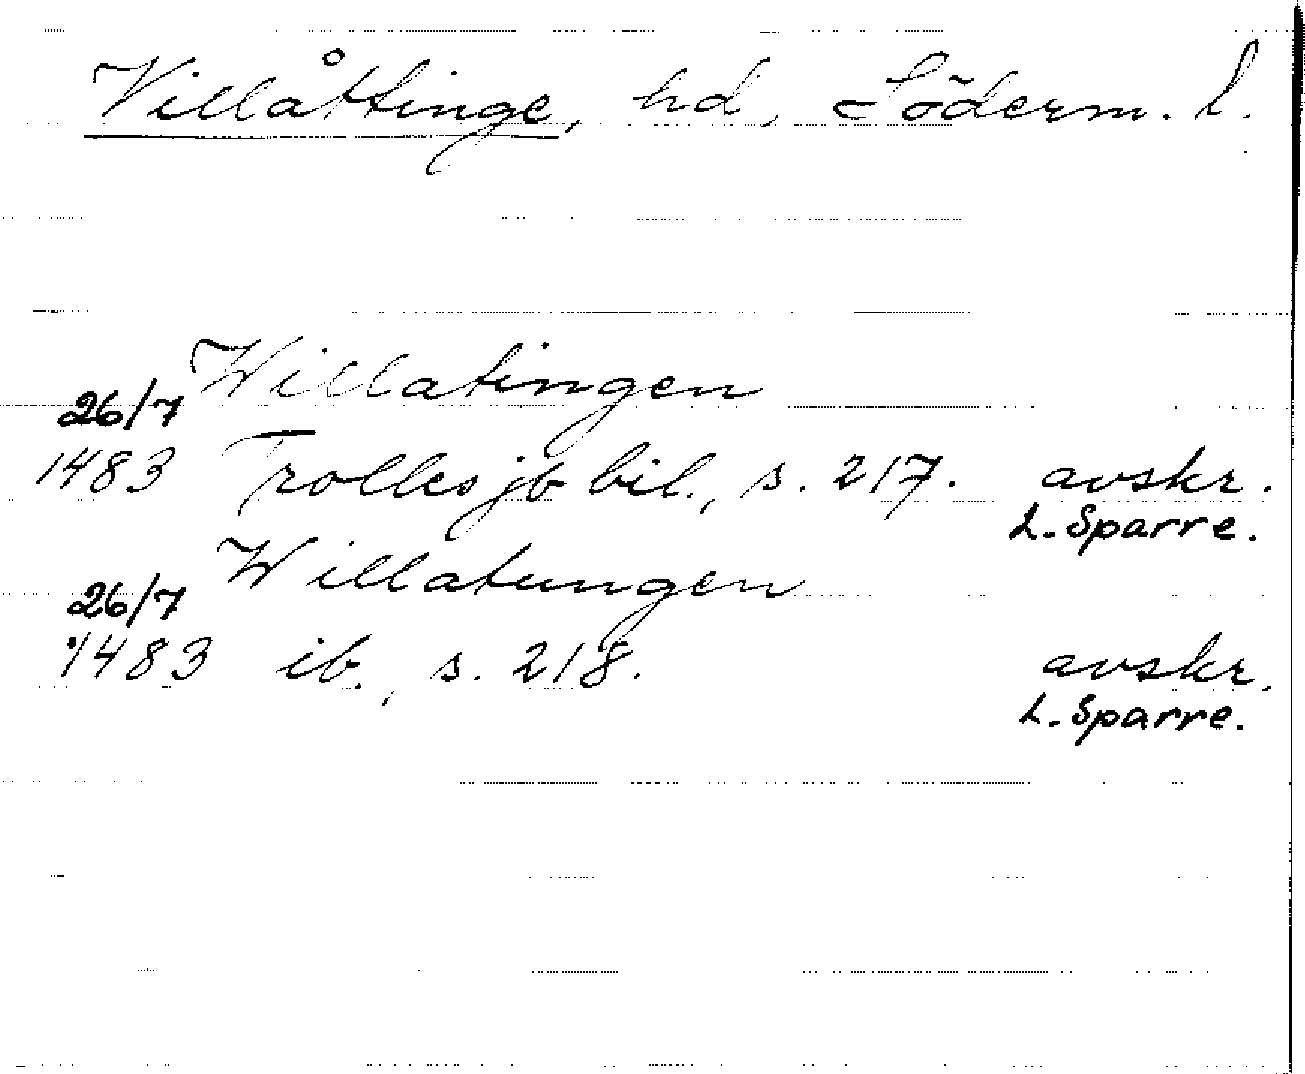 Villåttinge, hd, Söderm. l.
Willatingen
26/7
1483 Trolles jb bil., s. 217. avskr.
L. Sparre.
Willatungen
26/7
1483 ib., s. 218. avskr.
L. Sparre.